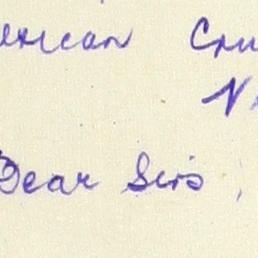 erican Cru
N
Dear Sirs,